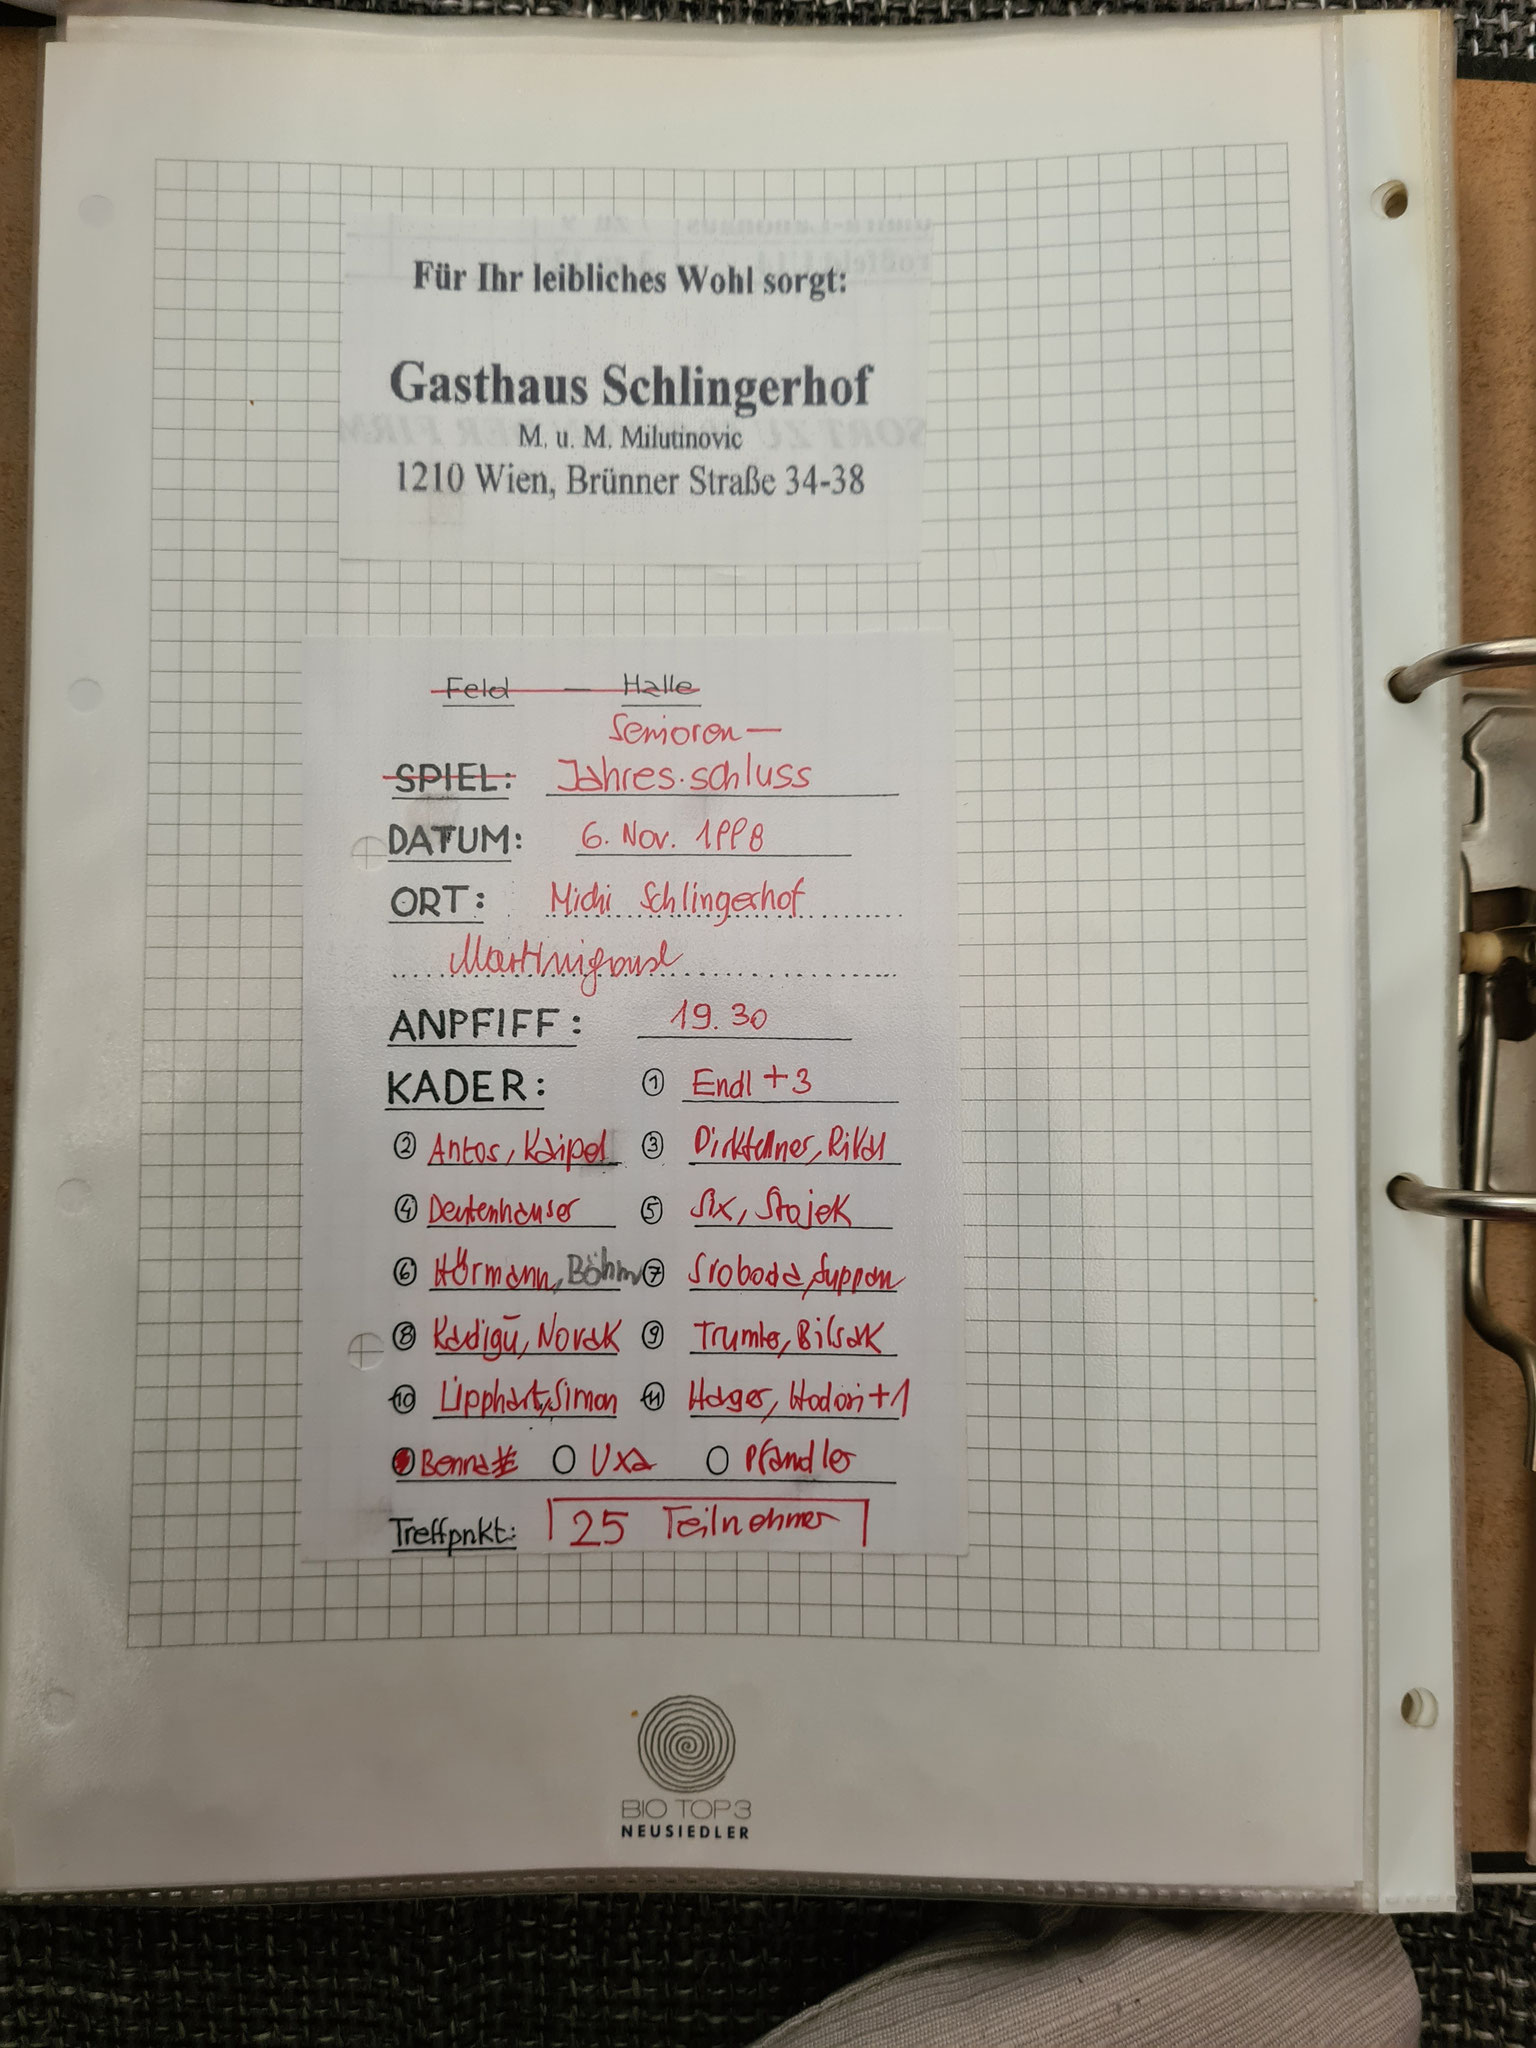 Für Ihr leibliches Wohl sorgt:
Gasthaus Schlingerhof
M. u. M. Milutinovic
1210 Wien, Brünner Straße 34-38
Feld — Halle
Senioren —
SPIEL: Jahres.schluss
DATUM: 6. Nov. 1998
ORT: Michi Schlingerhof
Martinigansl
ANPFIFF: 19.30
KADER: 1 Endl + 3
2 Antos, Kaipel 3 Dirktellner, Rikal
4 Deutenhauser 5 Six, Stojek
6 Hörmann, Böhm 7 Svoboda, Suppan
8 Kadigü, Novak 9 Trumler, Bilsak
10 Lipphart, Simon 11 Hager, Hodori + 1
Benna Uxa Pfandler
Treffpnkt: 25 Teilnehmer
BIO TOP 3
NEUSIEDLER